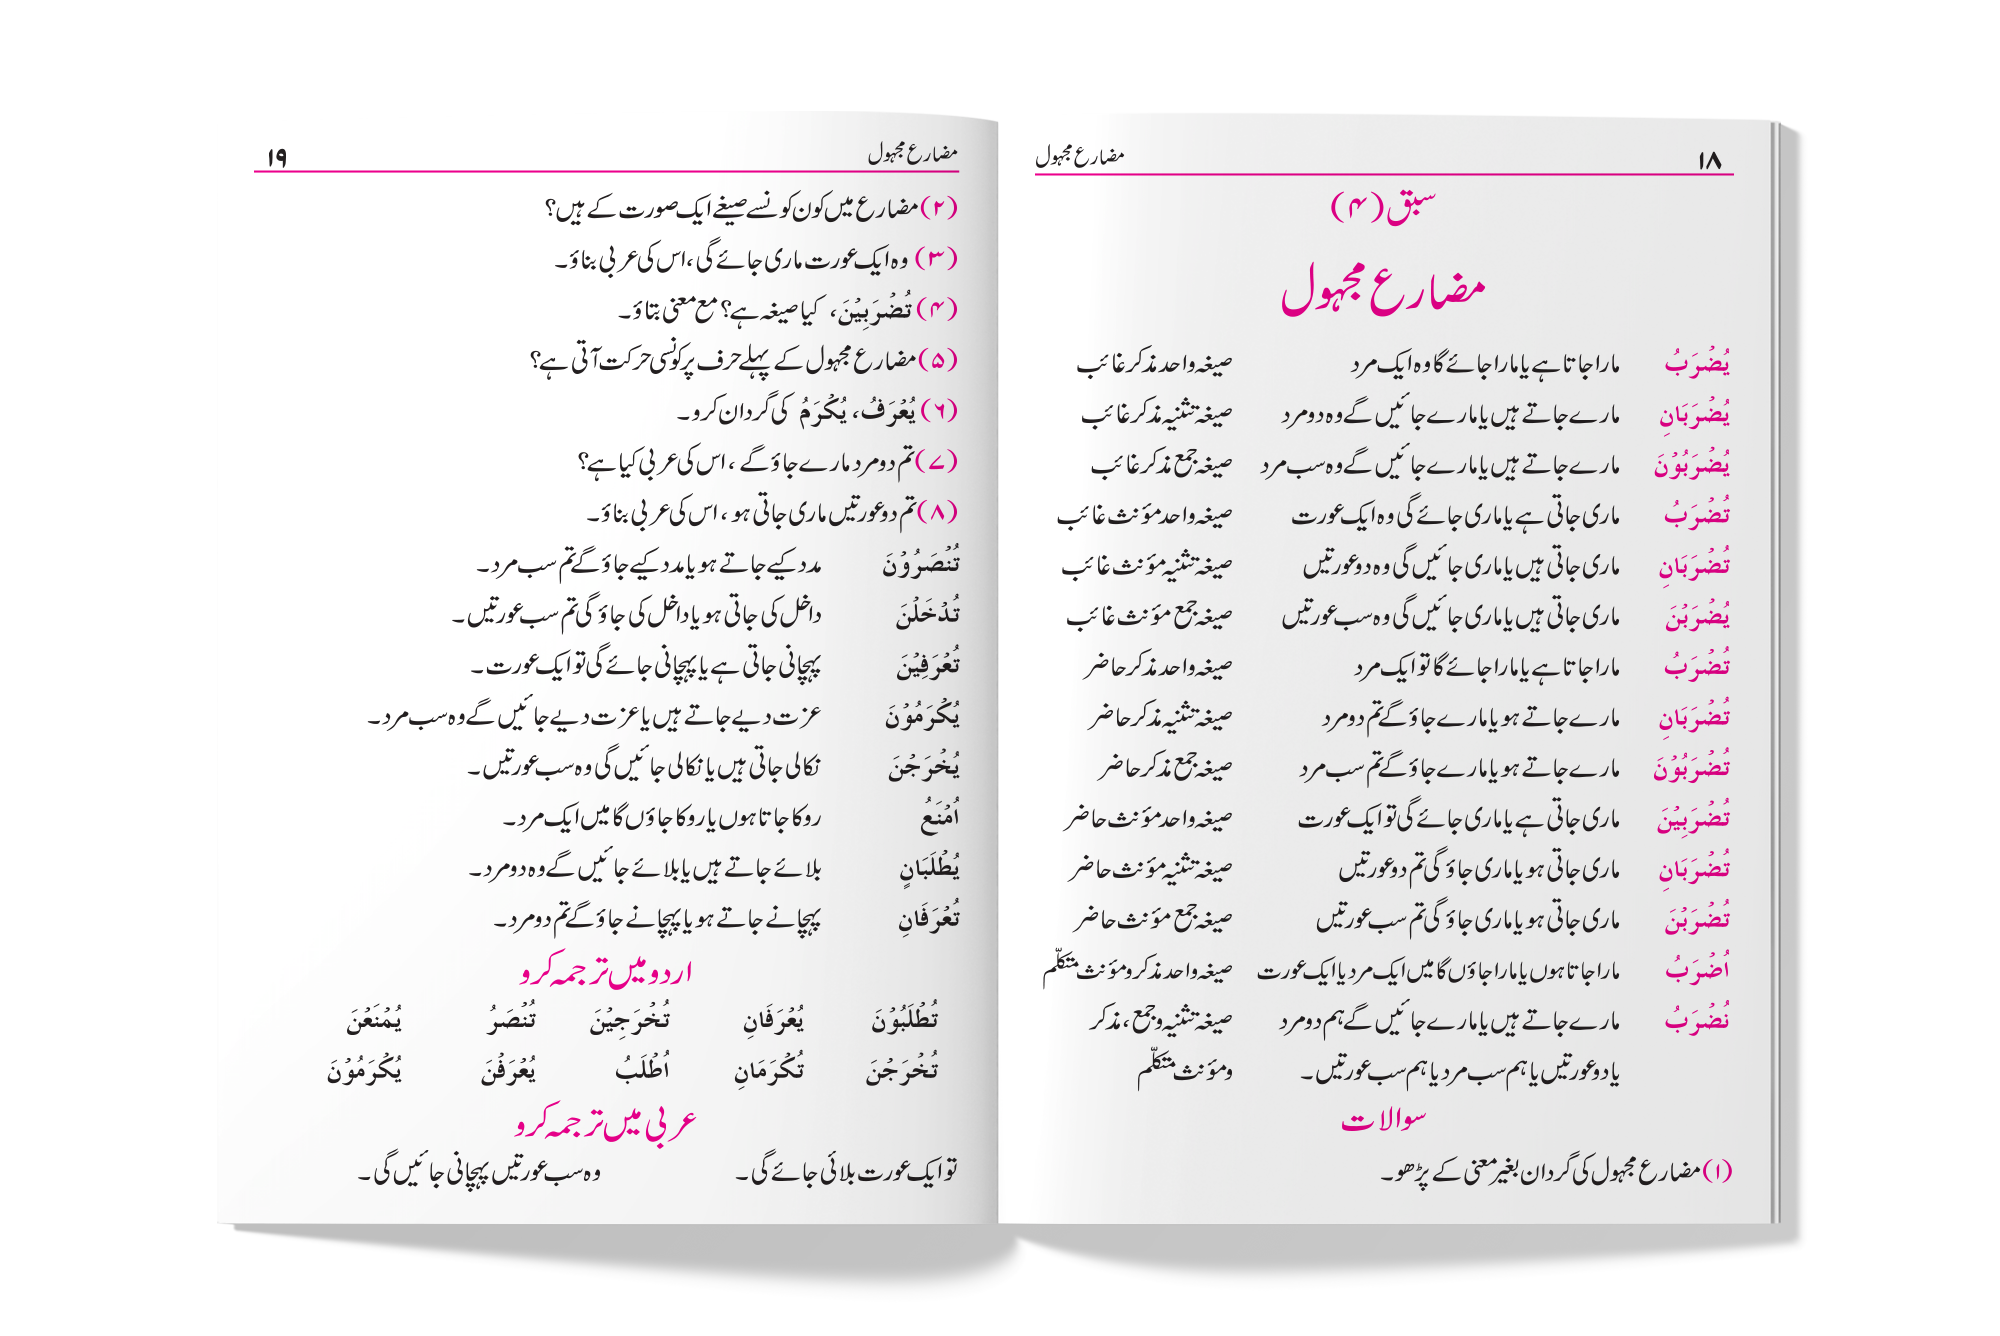 ۱۸ مضارع مجہول
سبق (۴)
مضارع مجہول
يُضْرَبُ مارا جاتا ہے یا مارا جائے گا وہ ایک مرد صیغہ واحد مذکر غائب
يُضْرَبَانِ مارے جاتے ہیں یا مارے جائیں گے وہ دو مرد صیغہ تثنیہ مذکر غائب
يُضْرَبُوْنَ مارے جاتے ہیں یا مارے جائیں گے وہ سب مرد صیغہ جمع مذکر غائب
تُضْرَبُ ماری جاتی ہے یا ماری جائے گی وہ ایک عورت صیغہ واحد مؤنث غائب
تُضْرَبَانِ ماری جاتی ہیں یا ماری جائیں گی وہ دو عورتیں صیغہ تثنیہ مؤنث غائب
يُضْرَبْنَ ماری جاتی ہیں یا ماری جائیں گی وہ سب عورتیں صیغہ جمع مؤنث غائب
تُضْرَبُ مارا جاتا ہے یا مارا جائے گا تو ایک مرد صیغہ واحد مذکر حاضر
تُضْرَبَانِ مارے جاتے ہو یا مارے جاؤ گے تم دو مرد صیغہ تثنیہ مذکر حاضر
تُضْرَبُوْنَ مارے جاتے ہو یا مارے جاؤ گے تم سب مرد صیغہ جمع مذکر حاضر
تُضْرَبِيْنَ ماری جاتی ہے یا ماری جائے گی تو ایک عورت صیغہ واحد مؤنث حاضر
تُضْرَبَانِ ماری جاتی ہو یا ماری جاؤ گی تم دو عورتیں صیغہ تثنیہ مؤنث حاضر
تُضْرَبْنَ ماری جاتی ہو یا ماری جاؤ گی تم سب عورتیں صیغہ جمع مؤنث حاضر
اُضْرَبُ مارا جاتا ہوں یا مارا جاؤں گا میں ایک مرد یا ایک عورت صیغہ واحد مذکر و مؤنث متکلّم
نُضْرَبُ مارے جاتے ہیں یا مارے جائیں گے ہم دو مرد صیغہ تثنیہ و جمع، مذکر
یا دو عورتیں یا ہم سب مرد یا ہم سب عورتیں۔ و مؤنث متکلّم
سوالات
(۱) مضارع مجہول کی گردان بغیر معنی کے پڑھو۔
مضارع مجہول ۱۹
(۲) مضارع میں کون کونسے صیغے ایک صورت کے ہیں؟
(۳) وہ ایک عورت ماری جائے گی، اس کی عربی بناؤ۔
(۴) تُضْرَبِيْنَ، کیا صیغہ ہے؟ مع معنی بتاؤ۔
(۵) مضارع مجہول کے پہلے حرف پر کونسی حرکت آتی ہے؟
(۶) يُعْرَفُ، يُكْرَمُ کی گردان کرو۔
(۷) تم دو مرد مارے جاؤ گے، اس کی عربی کیا ہے؟
(۸) تم دو عورتیں ماری جاتی ہو، اس کی عربی بناؤ۔
تُنْصَرُوْنَ مدد کیے جاتے ہو یا مدد کیے جاؤ گے تم سب مرد۔
تُدْخَلْنَ داخل کی جاتی ہو یا داخل کی جاؤ گی تم سب عورتیں۔
تُعْرَفِيْنَ پہچانی جاتی ہے یا پہچانی جائے گی تو ایک عورت۔
يُكْرَمُوْنَ عزت دیے جاتے ہیں یا عزت دیے جائیں گے وہ سب مرد۔
يُخْرَجْنَ نکالی جاتی ہیں یا نکالی جائیں گی وہ سب عورتیں۔
اُمْنَعُ روکا جاتا ہوں یا روکا جاؤں گا میں ایک مرد۔
يُطْلَبَانِ بلائے جاتے ہیں یا بلائے جائیں گے وہ دو مرد۔
تُعْرَفَانِ پہچانے جاتے ہو یا پہچانے جاؤ گے تم دو مرد۔
اردو میں ترجمہ کرو
تُطْلَبُوْنَ يُعْرَفَانِ تُخْرَجِيْنَ تُنْصَرُ يُمْنَعْنَ
تُخْرَجْنَ تُكْرَمَانِ اُطْلَبُ يُعْرَفْنَ يُكْرَمُوْنَ
عربی میں ترجمہ کرو
تو ایک عورت بلائی جائے گی۔ وہ سب عورتیں پہچانی جائیں گی۔